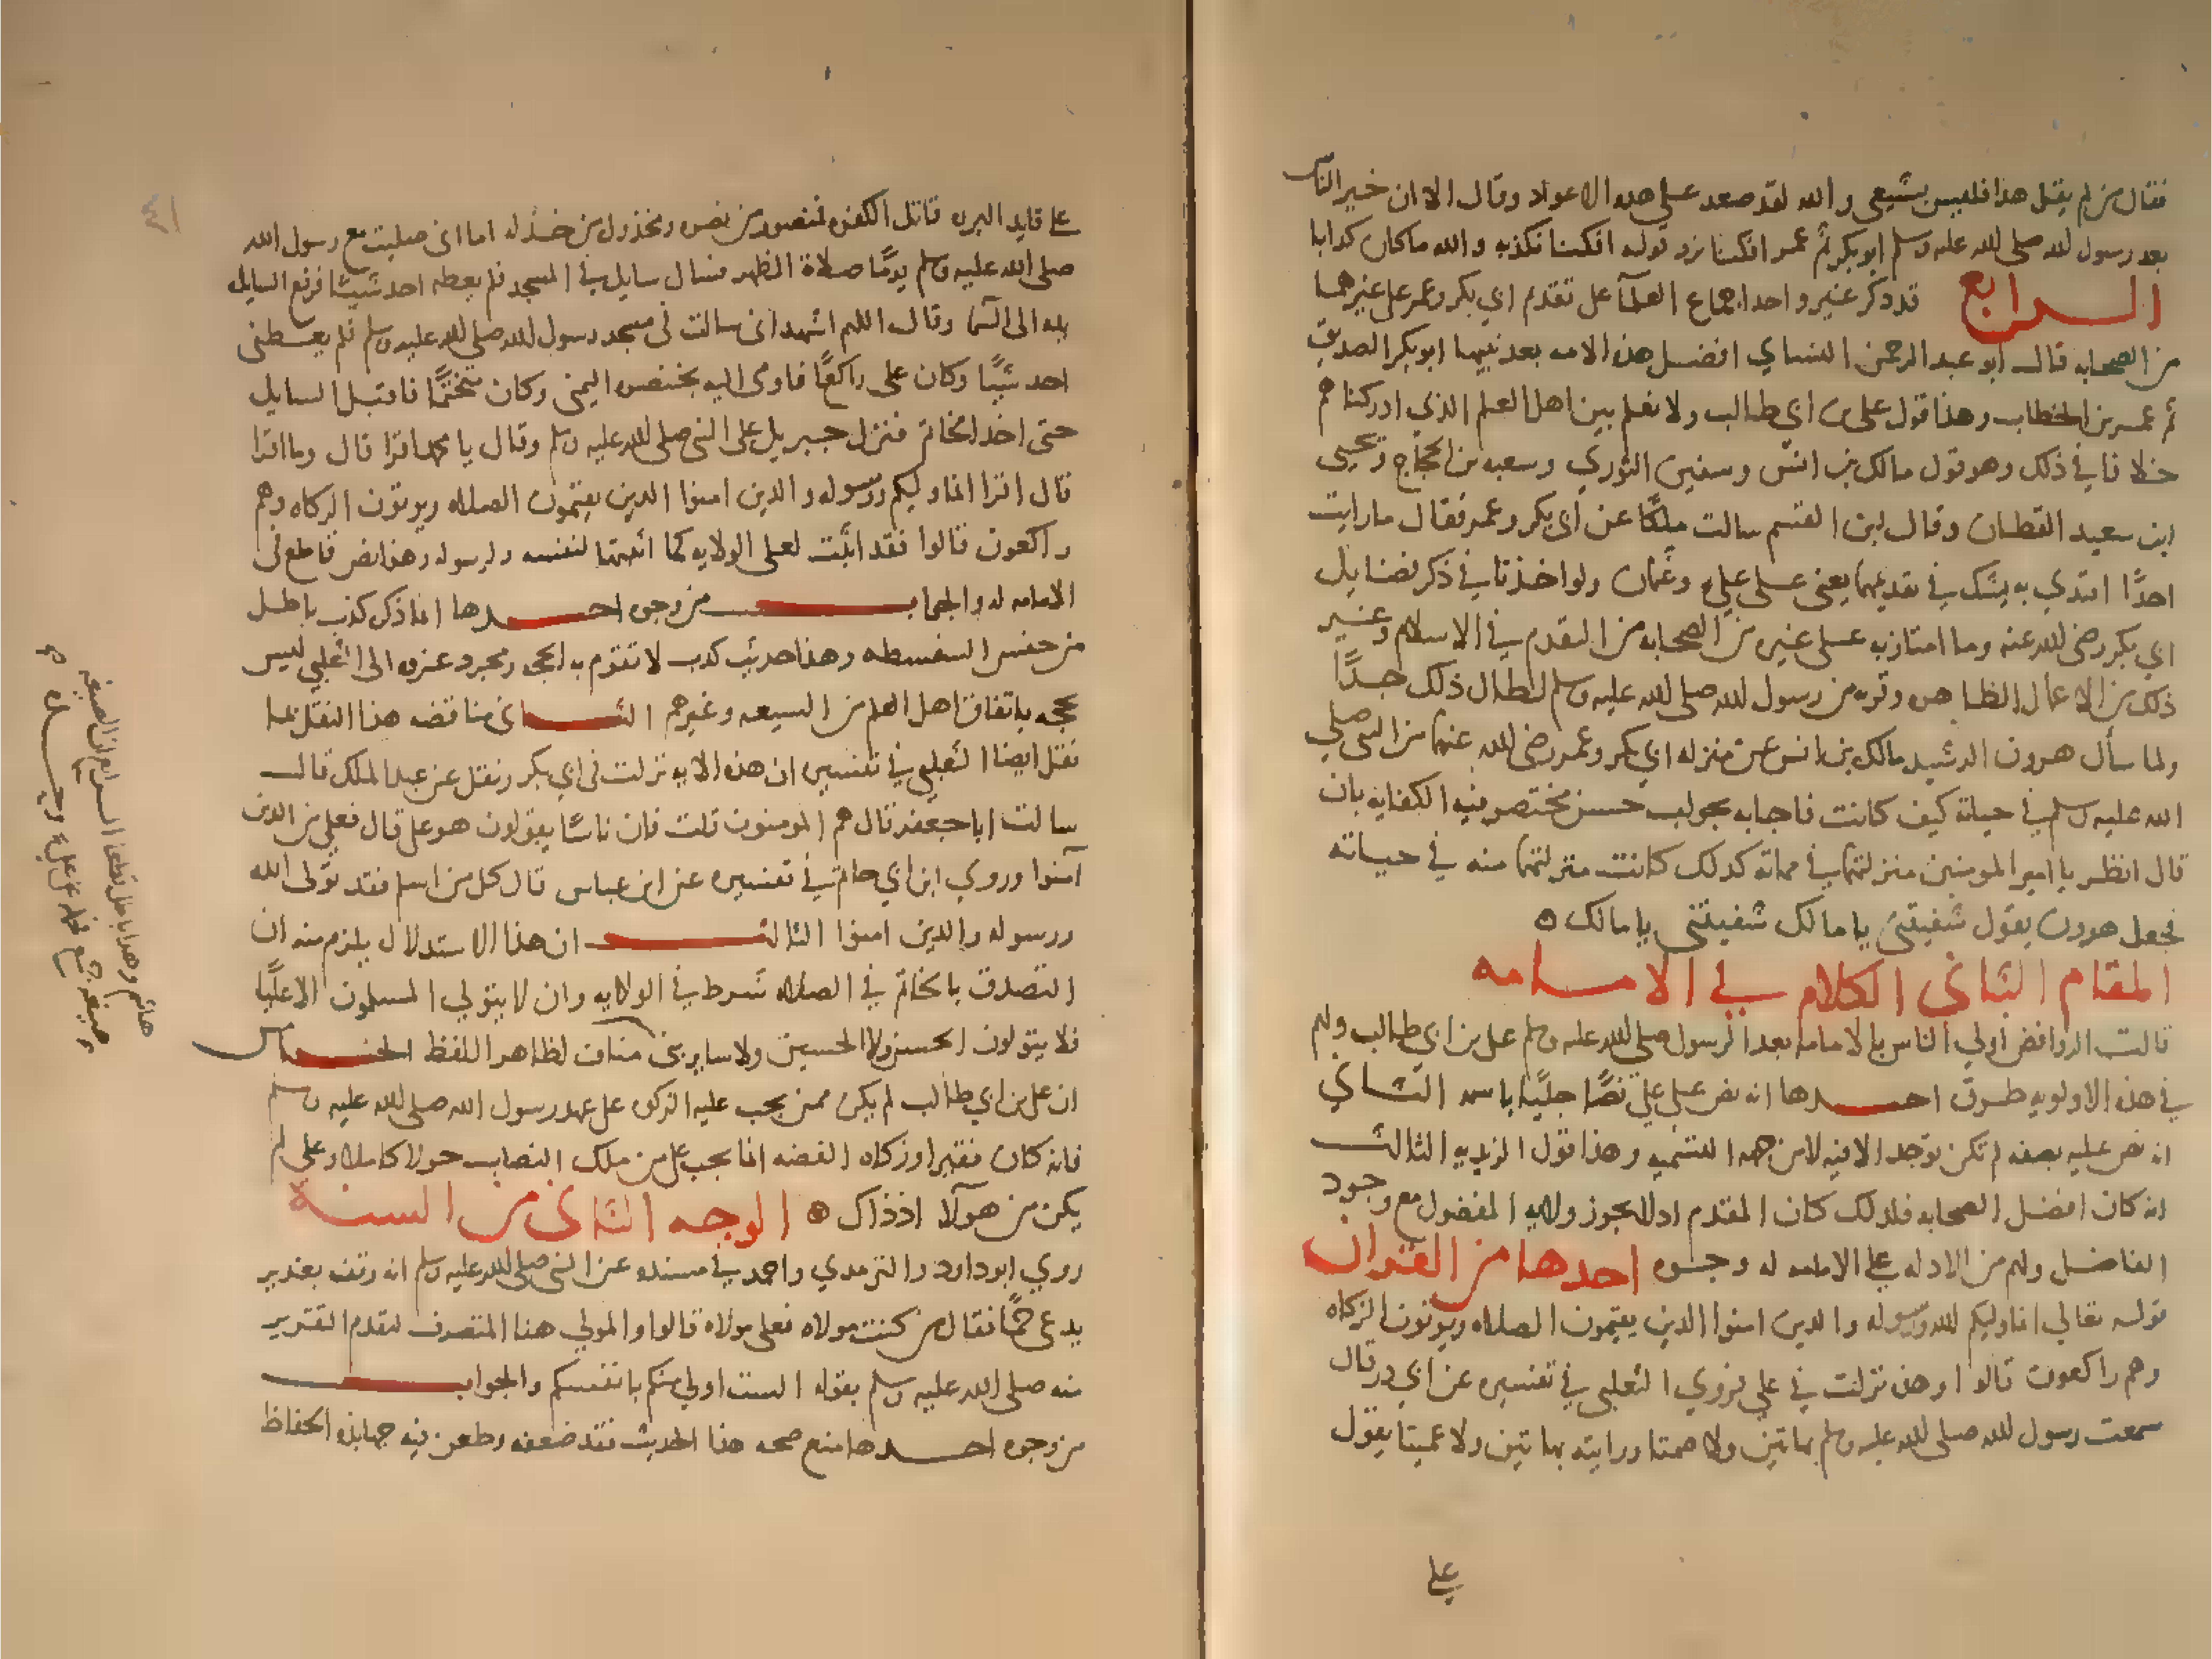 فقال من لم يقل هذا فليس بشيعي والله لقد صعد علي هذه الاعواد وقال الا ان خير الناس
بعد رسول الله صلى الله عليه وسلم ابو بكر ثم عمر افكنا نرد قوله افكنا نكذبه والله ما كان كدابا
الرابع قد ذكر غير واحد اجماع العلمآ على تقدم ابي بكر وعمر على غيرهما
من الصحابه قال ابو عبد الرحمن النساي افضل هذه الامه بعد نبيها ابو بكر الصديق
ثم عمر بن الخطاب وهذا قول علي بن ابي طالب ولا نعلم بين اهل العلم الذي ادركنا هم
خلافا في ذلك وهو قول مالك بن انس وسفين الثوري وسعبه بن الحجاج ويحيى
ابن سعيد القطان وقال ابن القسم سالت ملكا عن ابي بكر وعمر فقال ما رايت
احدًا اقتدي به يشك في تقديمهما يعني على علي وعثمان ولو اخذنا في ذكر فضايل
ابي بكر رضي الله عنه وما امتاز به على غيره من الصحابه من التقدم في الاسلام وغير
ذلك من الاعمال الظاهره وقربه من رسول الله صلى الله عليه وسلم لطال ذلك جدًّا
ولما سأل هرون الرشيد مالك بن انس عن منزله ابي بكر وعمر رضي الله عنهما من النبي صلي
الله عليه وسلم في حياته كيف كانت فاجابه بجواب حسن مختصر فيه الكفايه بان
قال انظر يا امير المومنين منزلتهما في مماته كدلك كانت منزلتهما منه في حياته
فجعل هرون يقول شفيتني يا مالك شفيتني يا مالك
المقام الثاني الكلام في الامامه
قالت الروافض اولي الناس بالامامه بعد الرسول صلى الله عليه وسلم علي بن ابي طالب ولهم
في هذه الاولويه طرق احدها انه نص على علي نصًّا جليًّا باسمه الثاني
انه نص عليه بصفه لم تكن توجد الا فيه لا من جهه التسميه وهذا قول الزيديه الثالث
انه كان افضل الصحابه فلدلك كان المقدم اد لا يجوز ولايه المفضول مع وجود
الفاضل ولهم من الادله علي الامامه له وجوه احدها من القران
قوله تعالي انما وليكم الله ورسوله والدين امنوا الدين يقيمون الصلاه ويوتون الزكاه
وهم راكعون قالوا وهذه نزلت في علي فروي الثعلبي في تفسيره عن ابي در قال
سمعت رسول الله صلى الله عليه وسلم بهاتين ولا صمتا ورايته بهاتين ولا عميتا يقول
علي
علي قايد البرره قاتل الكفره فمنصور من نصره ومخذول من خذله اما اني صليت مع رسول الله
صلى الله عليه وسلم يومًا صلاة الظهر فسال سايل في المسجد فلم يعطه احد شيئًا فرفع السايل
يده الى السما وقال اللهم اشهد اني سالت في مسجد رسول الله صلى الله عليه وسلم فلم يعطني
احد شيًا وكان علي راكعًا فاومى اليه بخنصره اليمنى وكان متختمًا فاقبل السايل
حتى اخد الخاتم فنزل جبريل على النبي صلى الله عليه وسلم وقال يا محمد اقرا قال وما اقرا
قال اقرا انما وليكم ورسوله والدين امنوا الدين يقيمون الصلاه ويوتون الزكاه وهم
راكعون قالوا فقد اثبت لعلي الولايه كما اثبتها لنفسه ولرسوله وهذا نص قاطع في
الامامه له والجواب من وجوه احدها انما ذكره كذب باطل
من جنس السفسطه وهذا حديث كدب لا تقوم به الحجه ومجرد عزوه الى الثعلبي ليس
بحجه باتفاق اهل العلم من السيعه وغيرهم الثاني مناقضه هذا النقل بما
نقل ايضا الثعلبي في تفسيره ان هذه الايه نزلت في ابي بكر ونقل عن عبد الملك قال
سالت ابا جعفر قال هم المومنون قلت فان ناسًا يقولون هو علي قال فعلي من الدين
آمنوا وروي ابن ابي حاتم في تفسيره عن ابن عباس قال كل من اسلم فقد تولى الله
ورسوله والدين امنوا الثالث ان هذا الاستدلال يلزم منه ان
التصدق بالخاتم في الصلاه شرط في الولايه وان لا يتولي المسلمون الا عليًّا
فلا يتولون الحسن ولا الحسين ولا ساير بني مناف لظاهر اللفظ الخامس
ان علي بن ابي طالب لم يكن ممن يجب عليه الزكوه على عهد رسول الله صلى الله عليه وسلم
فانه كان فقيرا وزكاه الفضه انما يجب على من ملك النصاب حولا كاملا وعلي لم
يكن من هوآلا اذذاك الوجه الثاني من السنة
روي ابو داود والترمدي واحمد في مسنده عن النبي صلى الله عليه وسلم انه وقف بغدير
يدعى خمًا فقال من كنت مولاه فعلي مولاه قالوا والمولي هنا المتصرف لتقدم التقرير
منه صلى الله عليه وسلم بقوله الست اولي منكم بانفسكم والجواب
من وجوه احدها منع صحه هذا الحديث فقد ضعفه وطعن فيه جهابذه الحفاظ